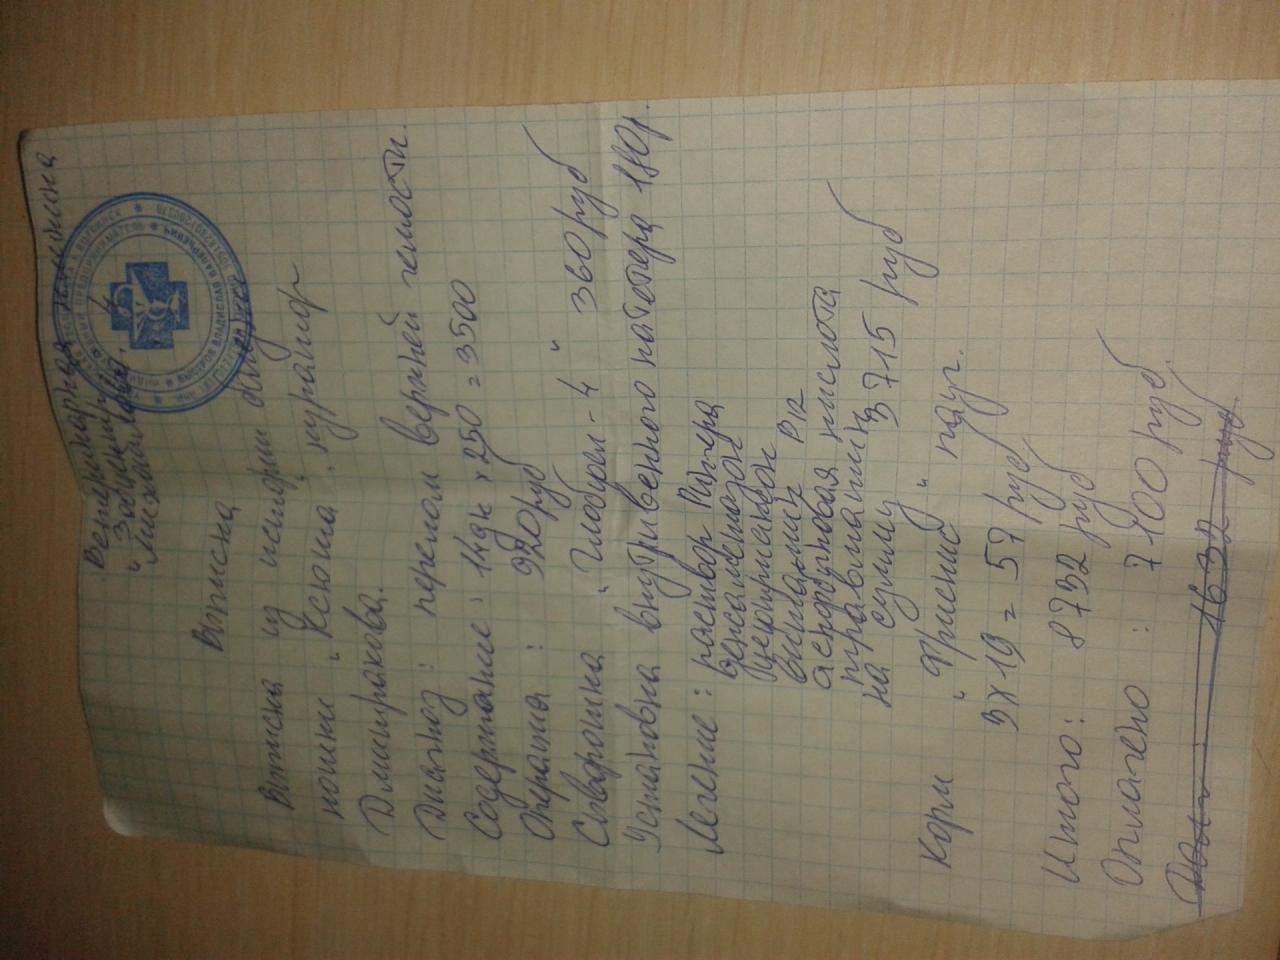 Ветеринарная клиника
"Зооцентр
Выписка
Выписка из истории
кошки "Ксюша", курайтор
Дмитракова.
Диагноз: перелом верхней челюсти.
Содержание: 14дн х 250 = 3500
Операция: 920 руб
Сыворотка "Глобфел-4" 360 руб
Установка внутривенного катетера 180р.
Лечение: раствор Рингера
дексаметазон
цефтриаксон
витамин В12
аскорбиновая кислота
травматин
на сумму 3715 руб
Корм "Фрискис" пауч.
3х19 = 57 руб
Итого: 8732 руб
Оплачено: 7100 руб
1632 руб